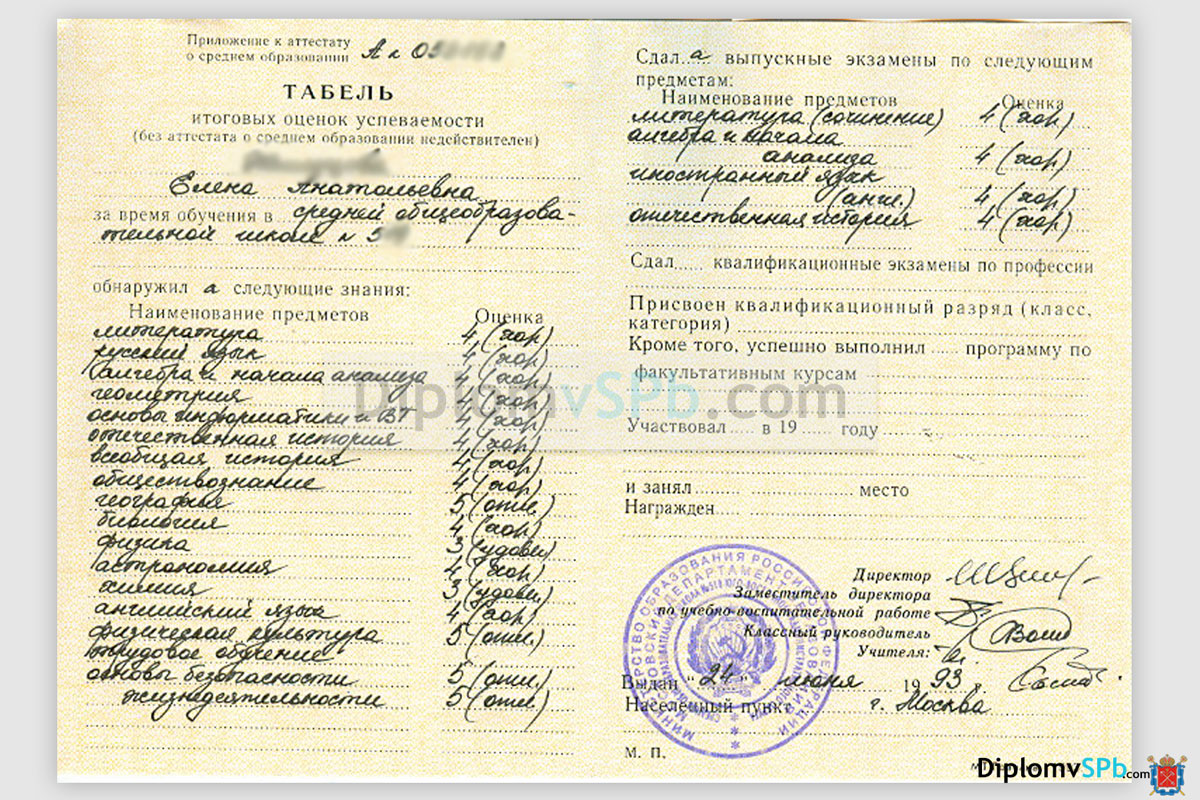 Приложение к аттестату
о среднем образовании А №
ТАБЕЛЬ
итоговых оценок успеваемости
(без аттестата о среднем образовании недействителен)
Елена Анатольевна
за время обучения в средней общеобразова-
тельной школе №
обнаружил а следующие знания:
Наименование предметов Оценка
литература 4 (хор)
русский язык 4 (хор)
алгебра и начала анализа 4 (хор)
геометрия 4 (хор)
основы информатики и ВТ 4 (хор)
отечественная история 4 (хор)
всеобщая история 4 (хор)
обществознание 4 (хор)
география 5 (отл.)
биология 4 (хор)
физика 3 (удовл)
астрономия 4 (хор)
химия 3 (удовл)
английский язык 4 (хор)
физическая культура 5 (отл.)
трудовое обучение
основы безопасности 5 (отл.)
жизнедеятельности 5 (отл)
Сдал а выпускные экзамены по следующим
предметам:
Наименование предметов Оценка
литература (сочинение) 4 (хор)
алгебра и начала
анализа 4 (хор)
иностранный язык
(англ.) 4 (хор)
отечественная история 4 (хор)
Сдал..... квалификационные экзамены по профессии
Присвоен квалификационный разряд (класс,
категория)
Кроме того, успешно выполнил ..... программу по
факультативным курсам
Участвовал ..... в 19 ...... году
и занял ......... место
Награжден
Директор
Заместитель директора
по учебно-воспитательной работе
Классный руководитель
Учителя:
Выдан "24" июня 1993 г.
Населенный пункт г. Москва
М. П.
DiplomvSPb.com
DiplomvSPb.com